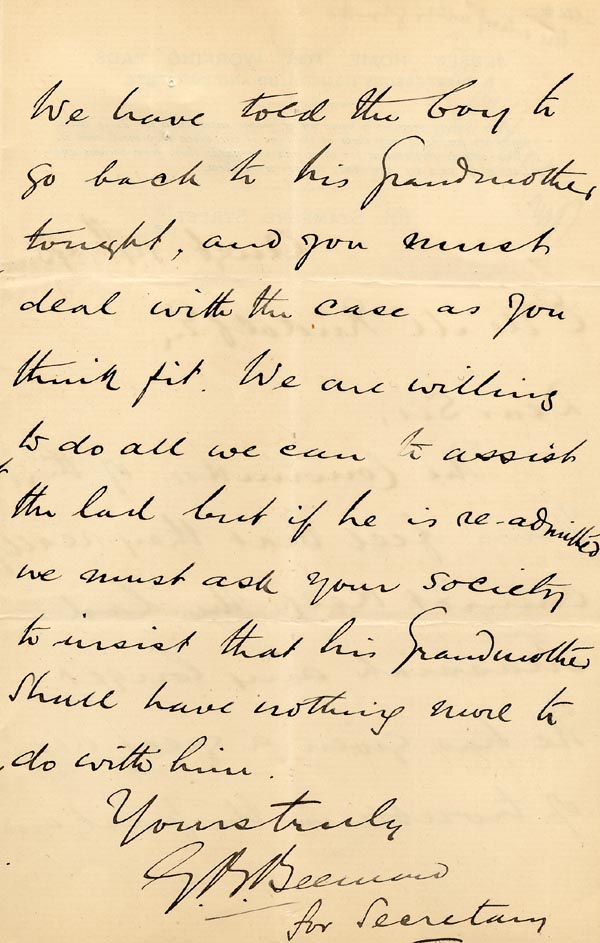 We have told the boy to
go back to his Grandmother
tonight, and you must
deal with the case as you
think fit. We are willing
to do all we can to assist
the lad but if he is re-admitted
we must ask your Society
to insist that his Grandmother
shall have nothing more to
do with him.
Yours truly
G.B.
for Secretary
HOME FOR WORKING LADS